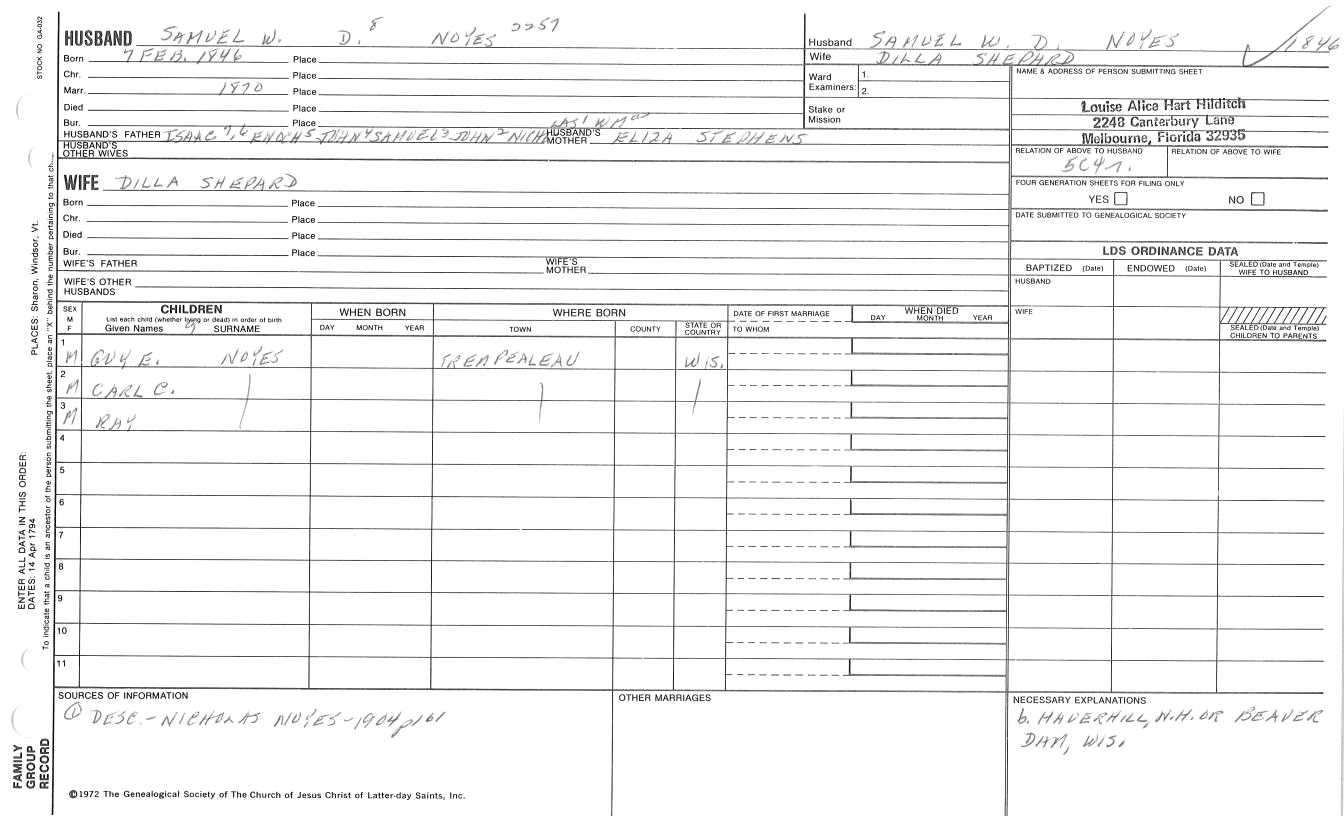 STOCK NO GA-032
HUSBAND SAMUEL W. D.⁸ NOYES 2257
Born 7 FEB. 1846 Place
Chr. Place
Marr. 1870 Place
Died Place
Bur. Place
HUSBAND'S FATHER ISAAC ⁷,⁶ ENOCH⁵ JOHN⁴ SAMUEL³ JOHN² NICHOLAS¹ WMᵃ HUSBAND'S MOTHER ELIZA STEPHENS
HUSBAND'S OTHER WIVES
WIFE DILLA SHEPARD
Born Place
Chr. Place
Died Place
Bur. Place
WIFE'S FATHER WIFE'S MOTHER
WIFE'S OTHER HUSBANDS
Husband SAMUEL W. D. NOYES 1846
Wife DILLA SHEPARD
Ward Examiners: 1.
2.
Stake or Mission
NAME & ADDRESS OF PERSON SUBMITTING SHEET
Louise Alice Hart Hilditch
2248 Canterbury Lane
Melbourne, Florida 32935
RELATION OF ABOVE TO HUSBAND RELATION OF ABOVE TO WIFE
5C4r.
FOUR GENERATION SHEETS FOR FILING ONLY
YES NO
DATE SUBMITTED TO GENEALOGICAL SOCIETY
LDS ORDINANCE DATA
BAPTIZED (Date) ENDOWED (Date) SEALED (Date and Temple) WIFE TO HUSBAND
HUSBAND
WIFE
SEALED (Date and Temple) CHILDREN TO PARENTS
SEX M F
CHILDREN
List each child (whether living or dead) in order of birth
Given Names 9 SURNAME
WHEN BORN
DAY MONTH YEAR
WHERE BORN
TOWN COUNTY STATE OR COUNTRY
DATE OF FIRST MARRIAGE
TO WHOM
WHEN DIED
DAY MONTH YEAR
1 M GUY E. NOYES TREMPEALEAU WIS.
2 M CARL C.
3 M RAY
4
5
6
7
8
9
10
11
SOURCES OF INFORMATION
① DESC.-NICHOLAS NOYES-1904 p161
OTHER MARRIAGES
NECESSARY EXPLANATIONS
b. HAVERHILL, N.H. OR BEAVER
DAM, WIS.
©1972 The Genealogical Society of The Church of Jesus Christ of Latter-day Saints, Inc.
FAMILY GROUP RECORD
ENTER ALL DATA IN THIS ORDER:
DATES: 14 Apr 1794
PLACES: Sharon, Windsor, Vt.
To indicate that a child is an ancestor of the person submitting the sheet, place an "X" behind the number pertaining to that